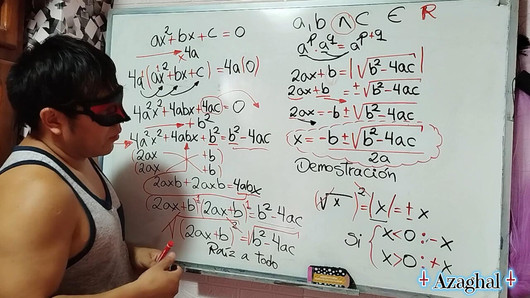 ax² + bx + c = 0
4a
4a(ax² + bx + c) = 4a(0)
4a²x² + 4abx + 4ac = 0
+ b²
4a²x² + 4abx + b² = b² - 4ac
(2ax +b)
(2ax +b)
2axb + 2axb = 4abx
(2ax+b)¹(2ax+b)¹ = b² - 4ac
√(2ax+b)² = √b² - 4ac
Raiz a todo
a, b ∧ c ∈ R
aᵖ · a^q = a^(p+q)
2ax + b = |√b² - 4ac|
2ax + b = ±√b² - 4ac
2ax = -b ± √b² - 4ac
x = -b ± √b² - 4ac
2a
Demostración
(√x)² = |x| = ± x
Si { x<0 ∴ -x
x>0 ∴ +x
Azaghal